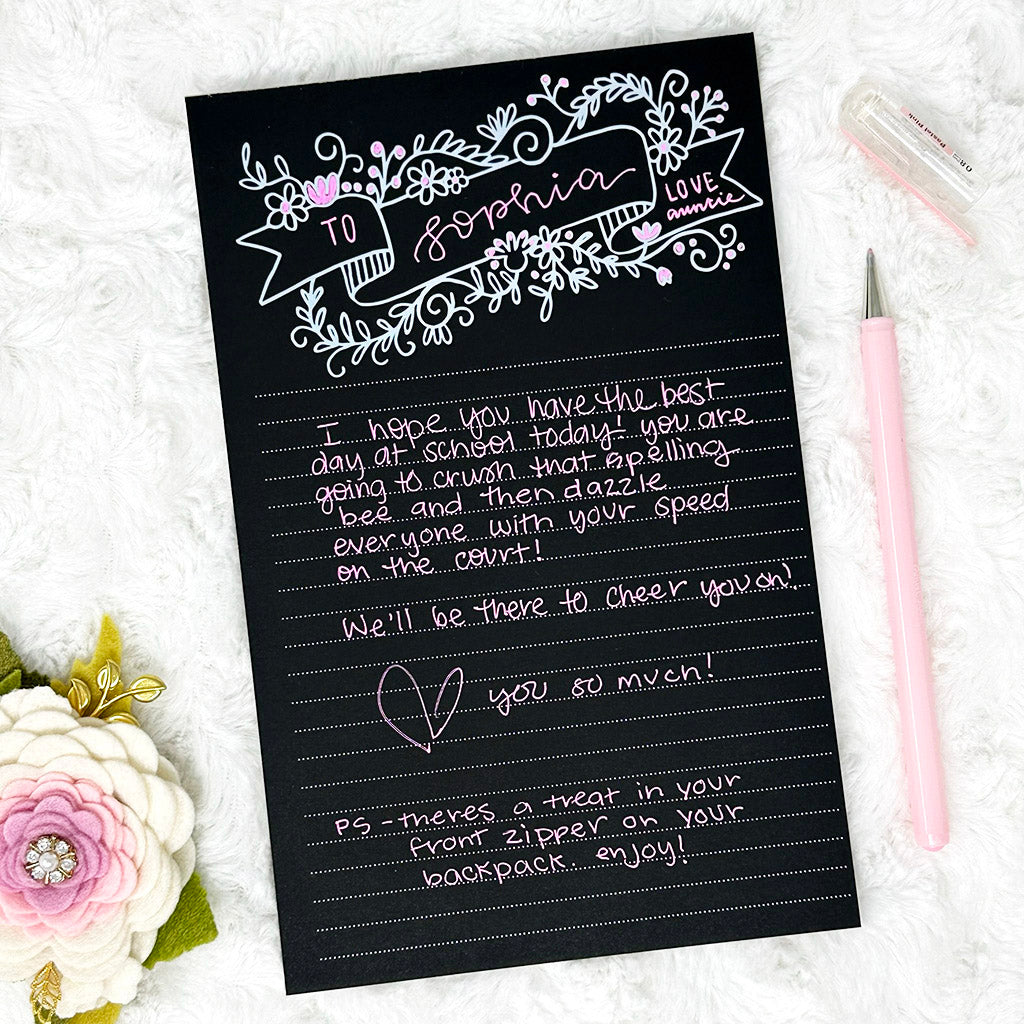 TO
Sophia
LOVE
auntie
I hope you have the best
day at school today! you are
going to crush that spelling
bee and then dazzle
everyone with your speed
on the court!
We'll be there to cheer you on!
you so much!
PS - theres a treat in your
front zipper on your
backpack. enjoy!
Pastel Pink
0.8